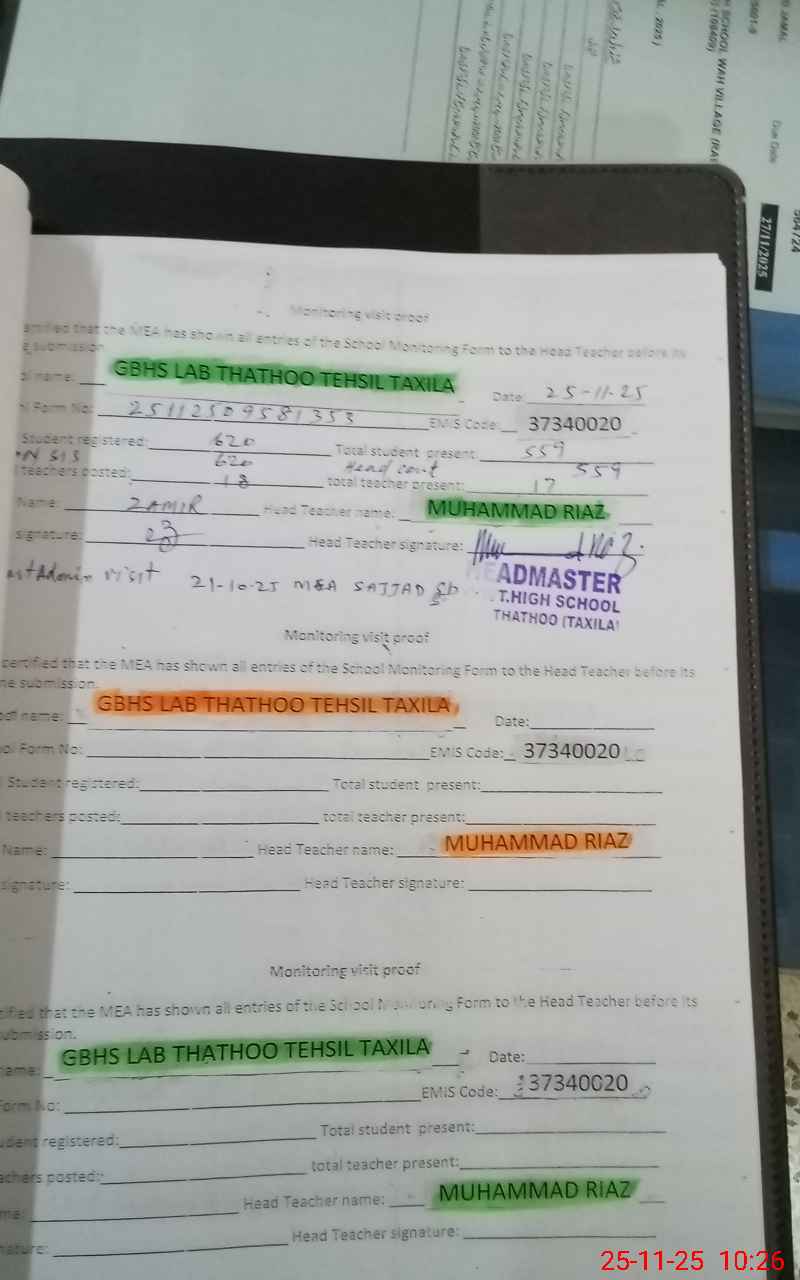 D JAMAL
H SCHOOL WAH VILLAGE (RA
(109409)
, 2025 )
Due Date
564724
27/11/2025
Monitoring visit proof
that the MEA has shown all entries of the School Monitoring Form to the Head Teacher before its
submission
name: GBHS LAB THATHOO TEHSIL TAXILA Date: 25-11-25
Form No: 25112509581353 EMIS Code: 37340020
Student registered: 620 Total student present: 559
SIS 620 Head cont 559
teachers posted: 18 total teacher present: 17
Name: ZAMIR Head Teacher name: MUHAMMAD RIAZ
signature: Head Teacher signature:
Admin visit 21-10-25 MEA SAJJAD
ADMASTER
T.HIGH SCHOOL
THATHOO (TAXILA)
Monitoring visit proof
certified that the MEA has shown all entries of the School Monitoring Form to the Head Teacher before its
ne submission.
name: GBHS LAB THATHOO TEHSIL TAXILA Date:
ol Form No: EMIS Code: 37340020
Student registered: Total student present:
teachers posted: total teacher present:
Name: Head Teacher name: MUHAMMAD RIAZ
signature: Head Teacher signature:
Monitoring visit proof
tified that the MEA has shown all entries of the School Monitoring Form to the Head Teacher before its
ubmission.
ame: GBHS LAB THATHOO TEHSIL TAXILA Date:
Form No: EMIS Code: 37340020
udent registered: Total student present:
achers posted: total teacher present:
me: Head Teacher name: MUHAMMAD RIAZ
nature: Head Teacher signature:
25-11-25 10:26